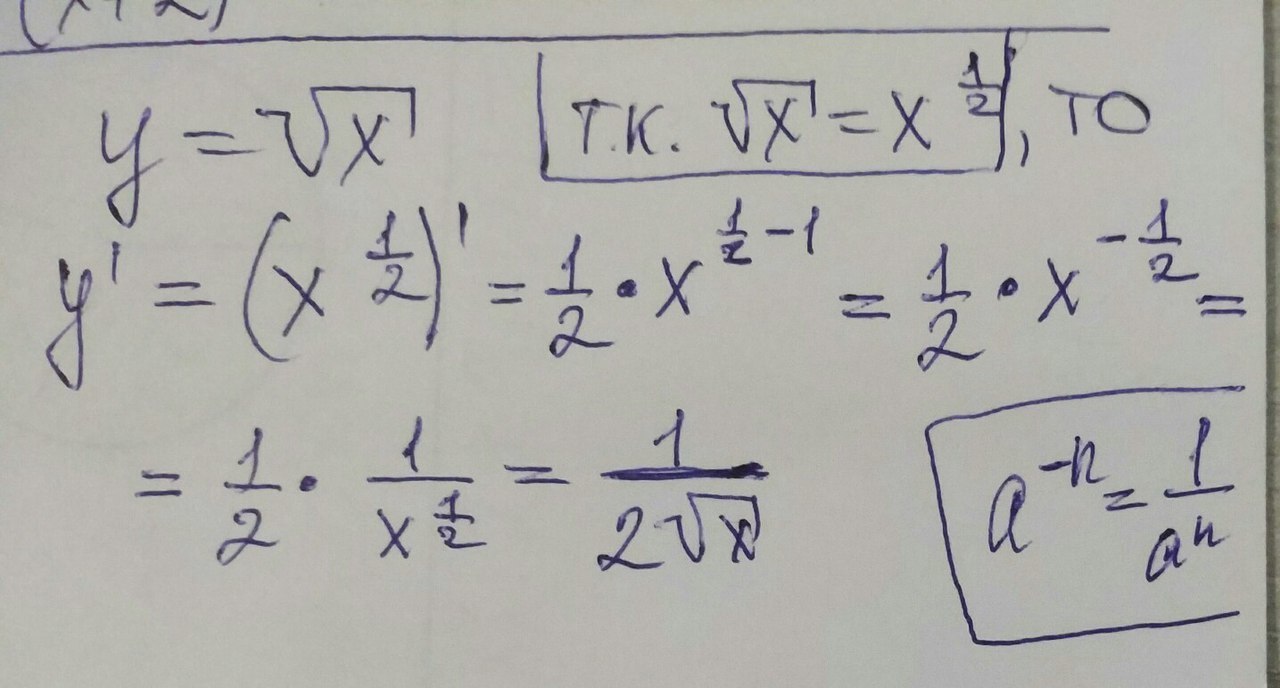 y = √x т.к. √x = x^(1/2), то
y' = (x^(1/2))' = 1/2 · x^(1/2 - 1) = 1/2 · x^(-1/2) =
= 1/2 · 1/x^(1/2) = 1/(2√x)
a^(-n) = 1/a^n